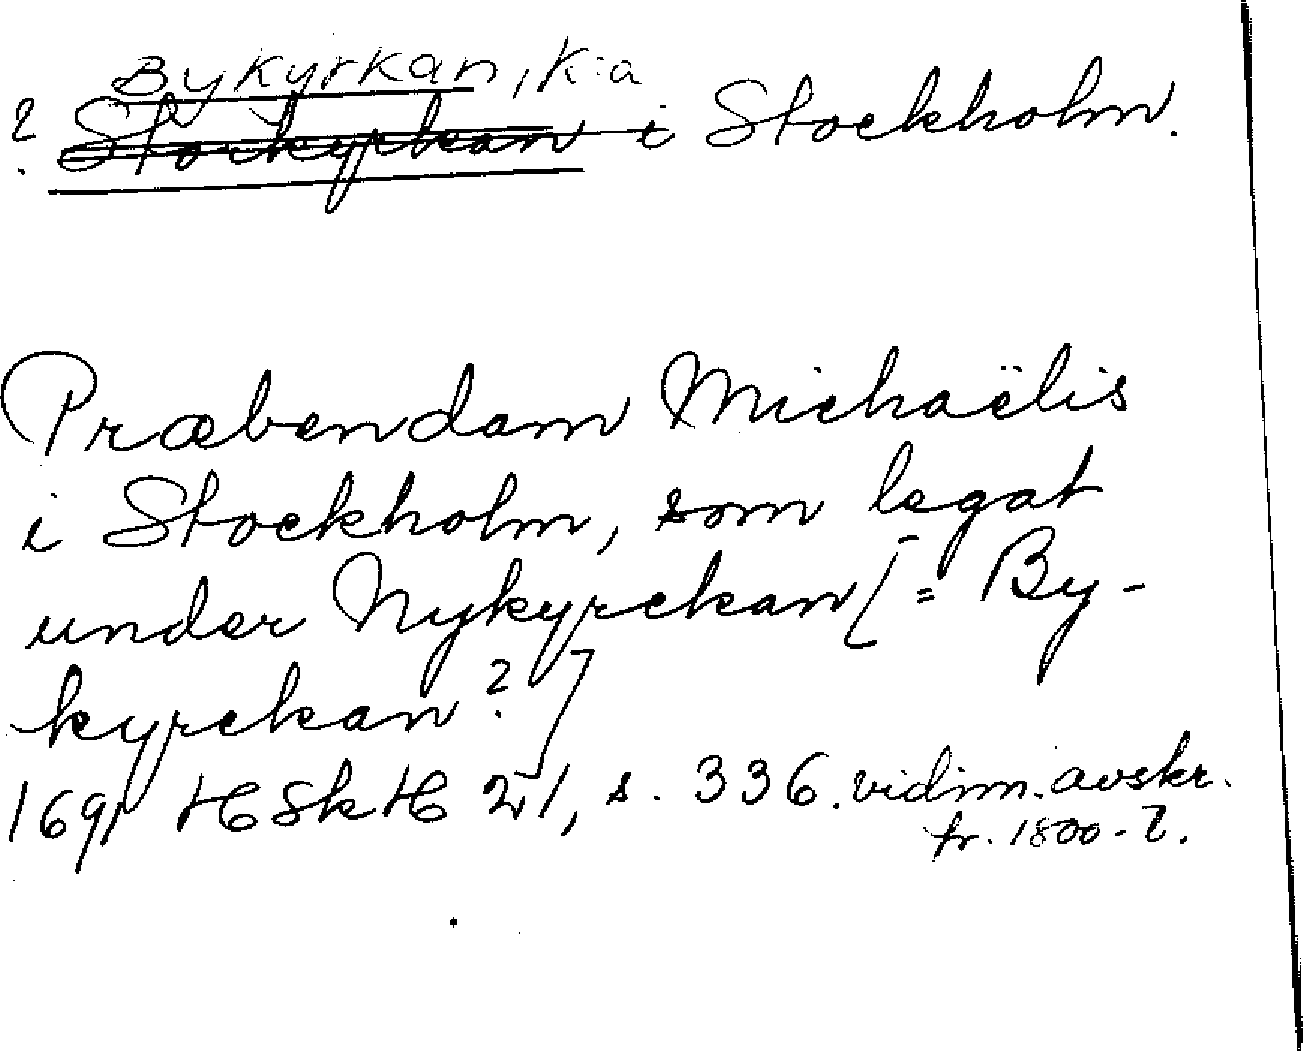 Bykyrkan, k:a
? Storkyrkan i Stockholm.
Præbendam Michaëlis
i Stockholm, som legat
under Nykyrckan [= By-
kyrckan?]
1691 HSkH 21, s. 336. vidim. avskr.
fr. 1800-t.